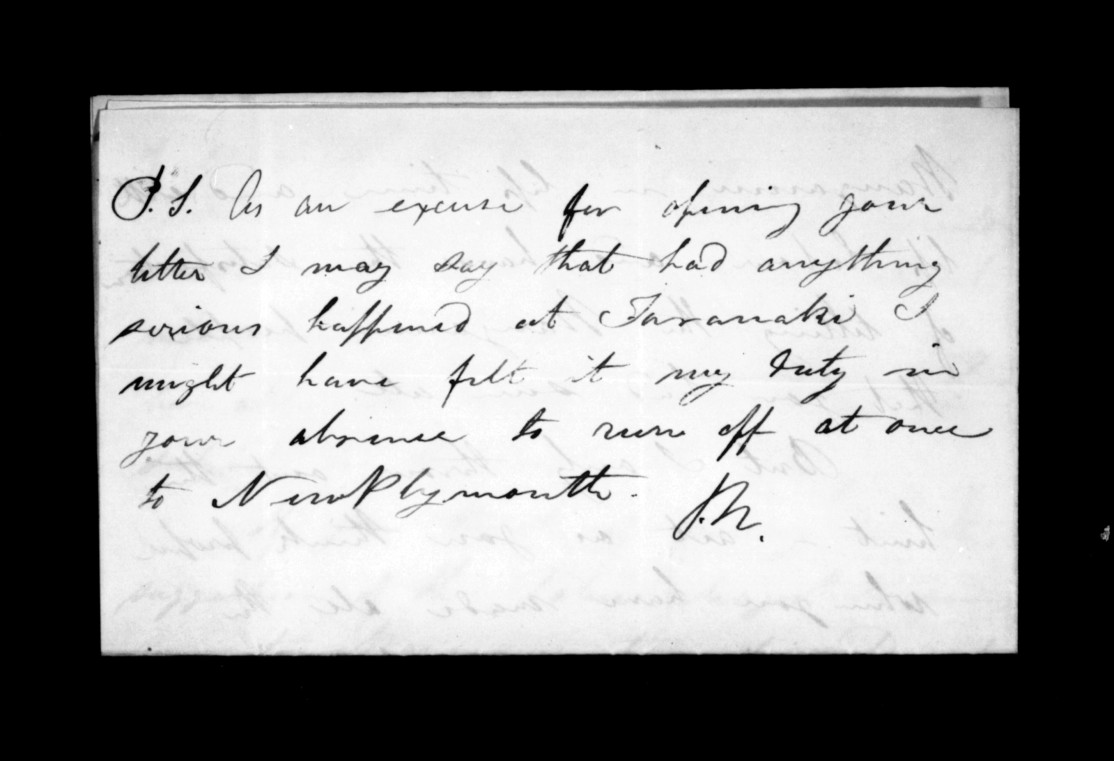 P.S. As an excuse for opening your
letter I may say that had anything
serious happened at Taranaki I
might have felt it my duty in
your absence to run off at once
to New Plymouth.